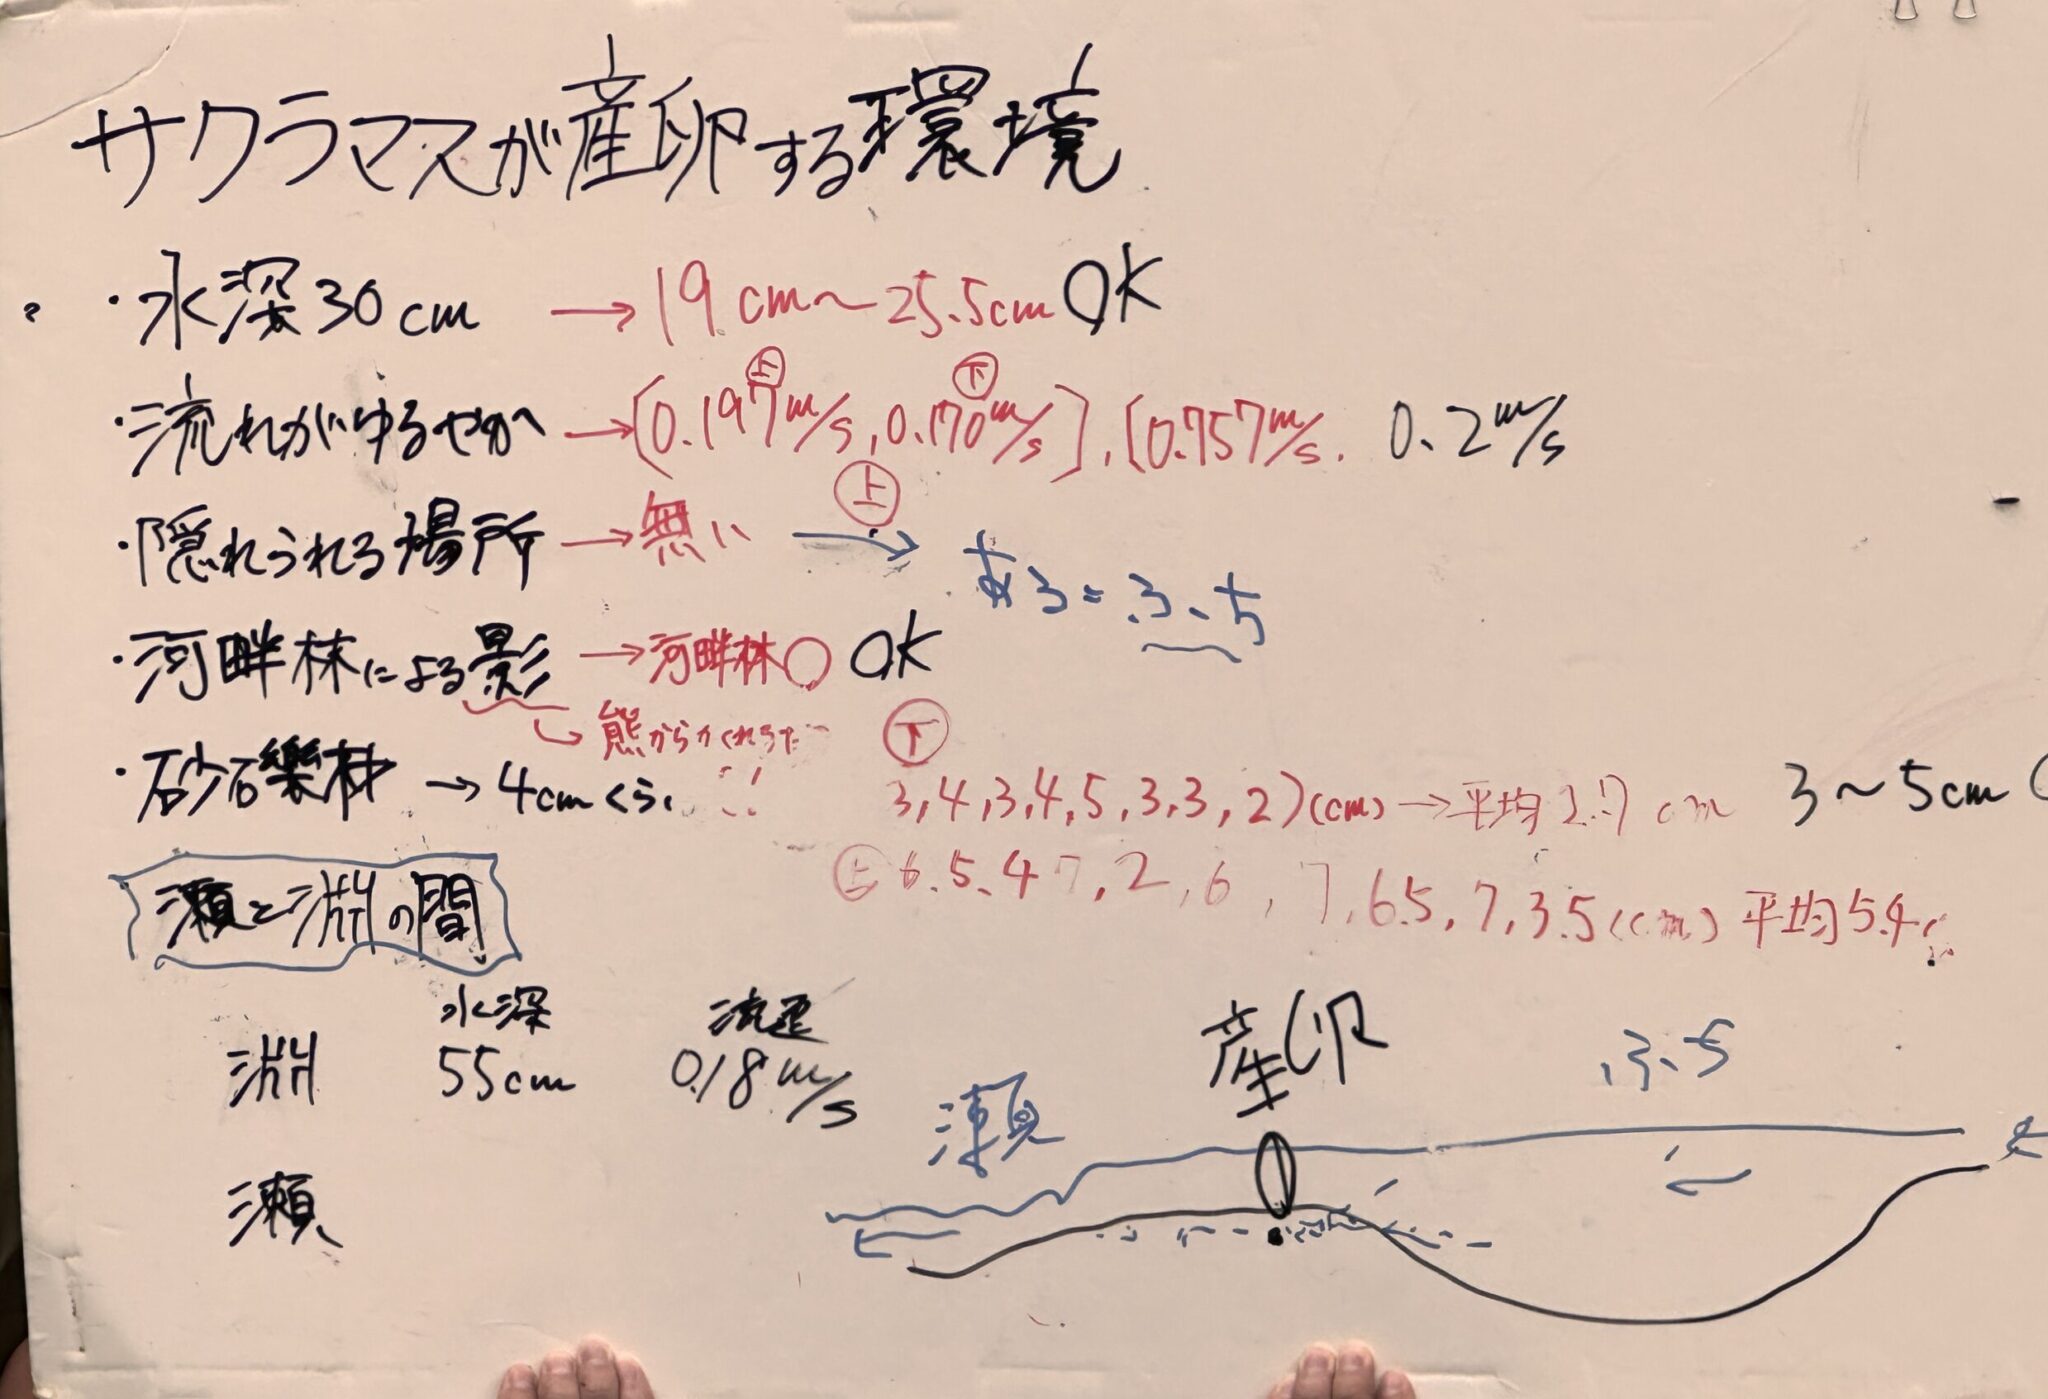 サクラマスが産卵する環境
・水深30cm → 19cm～25.5cm OK
上 下
・流れがゆるやか → [0.197m/s, 0.170m/s], [0.757m/s. 0.2m/s
上
・隠れられる場所 → 無い → ある=ふち
・河畔林による影 → 河畔林○ OK
熊から
下
・砂石礫材 → 4cmくらい 3,4,3,4,5,3,3,2)(cm) → 平均 cm 3～5cm
上 6.5.4 7,2,6,7,6.5,7,3.5(cm) 平均5.4
瀬と淵の間
水深 流速
淵 55cm 0.18m/s
瀬
産卵
ふち
瀬